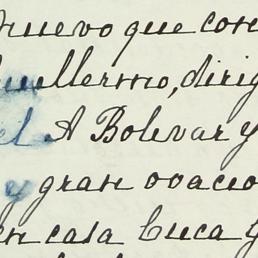 nuevo que con
Guillermo, dirig
el A Bolivar y
y gran ovacio
en casa Cuca y